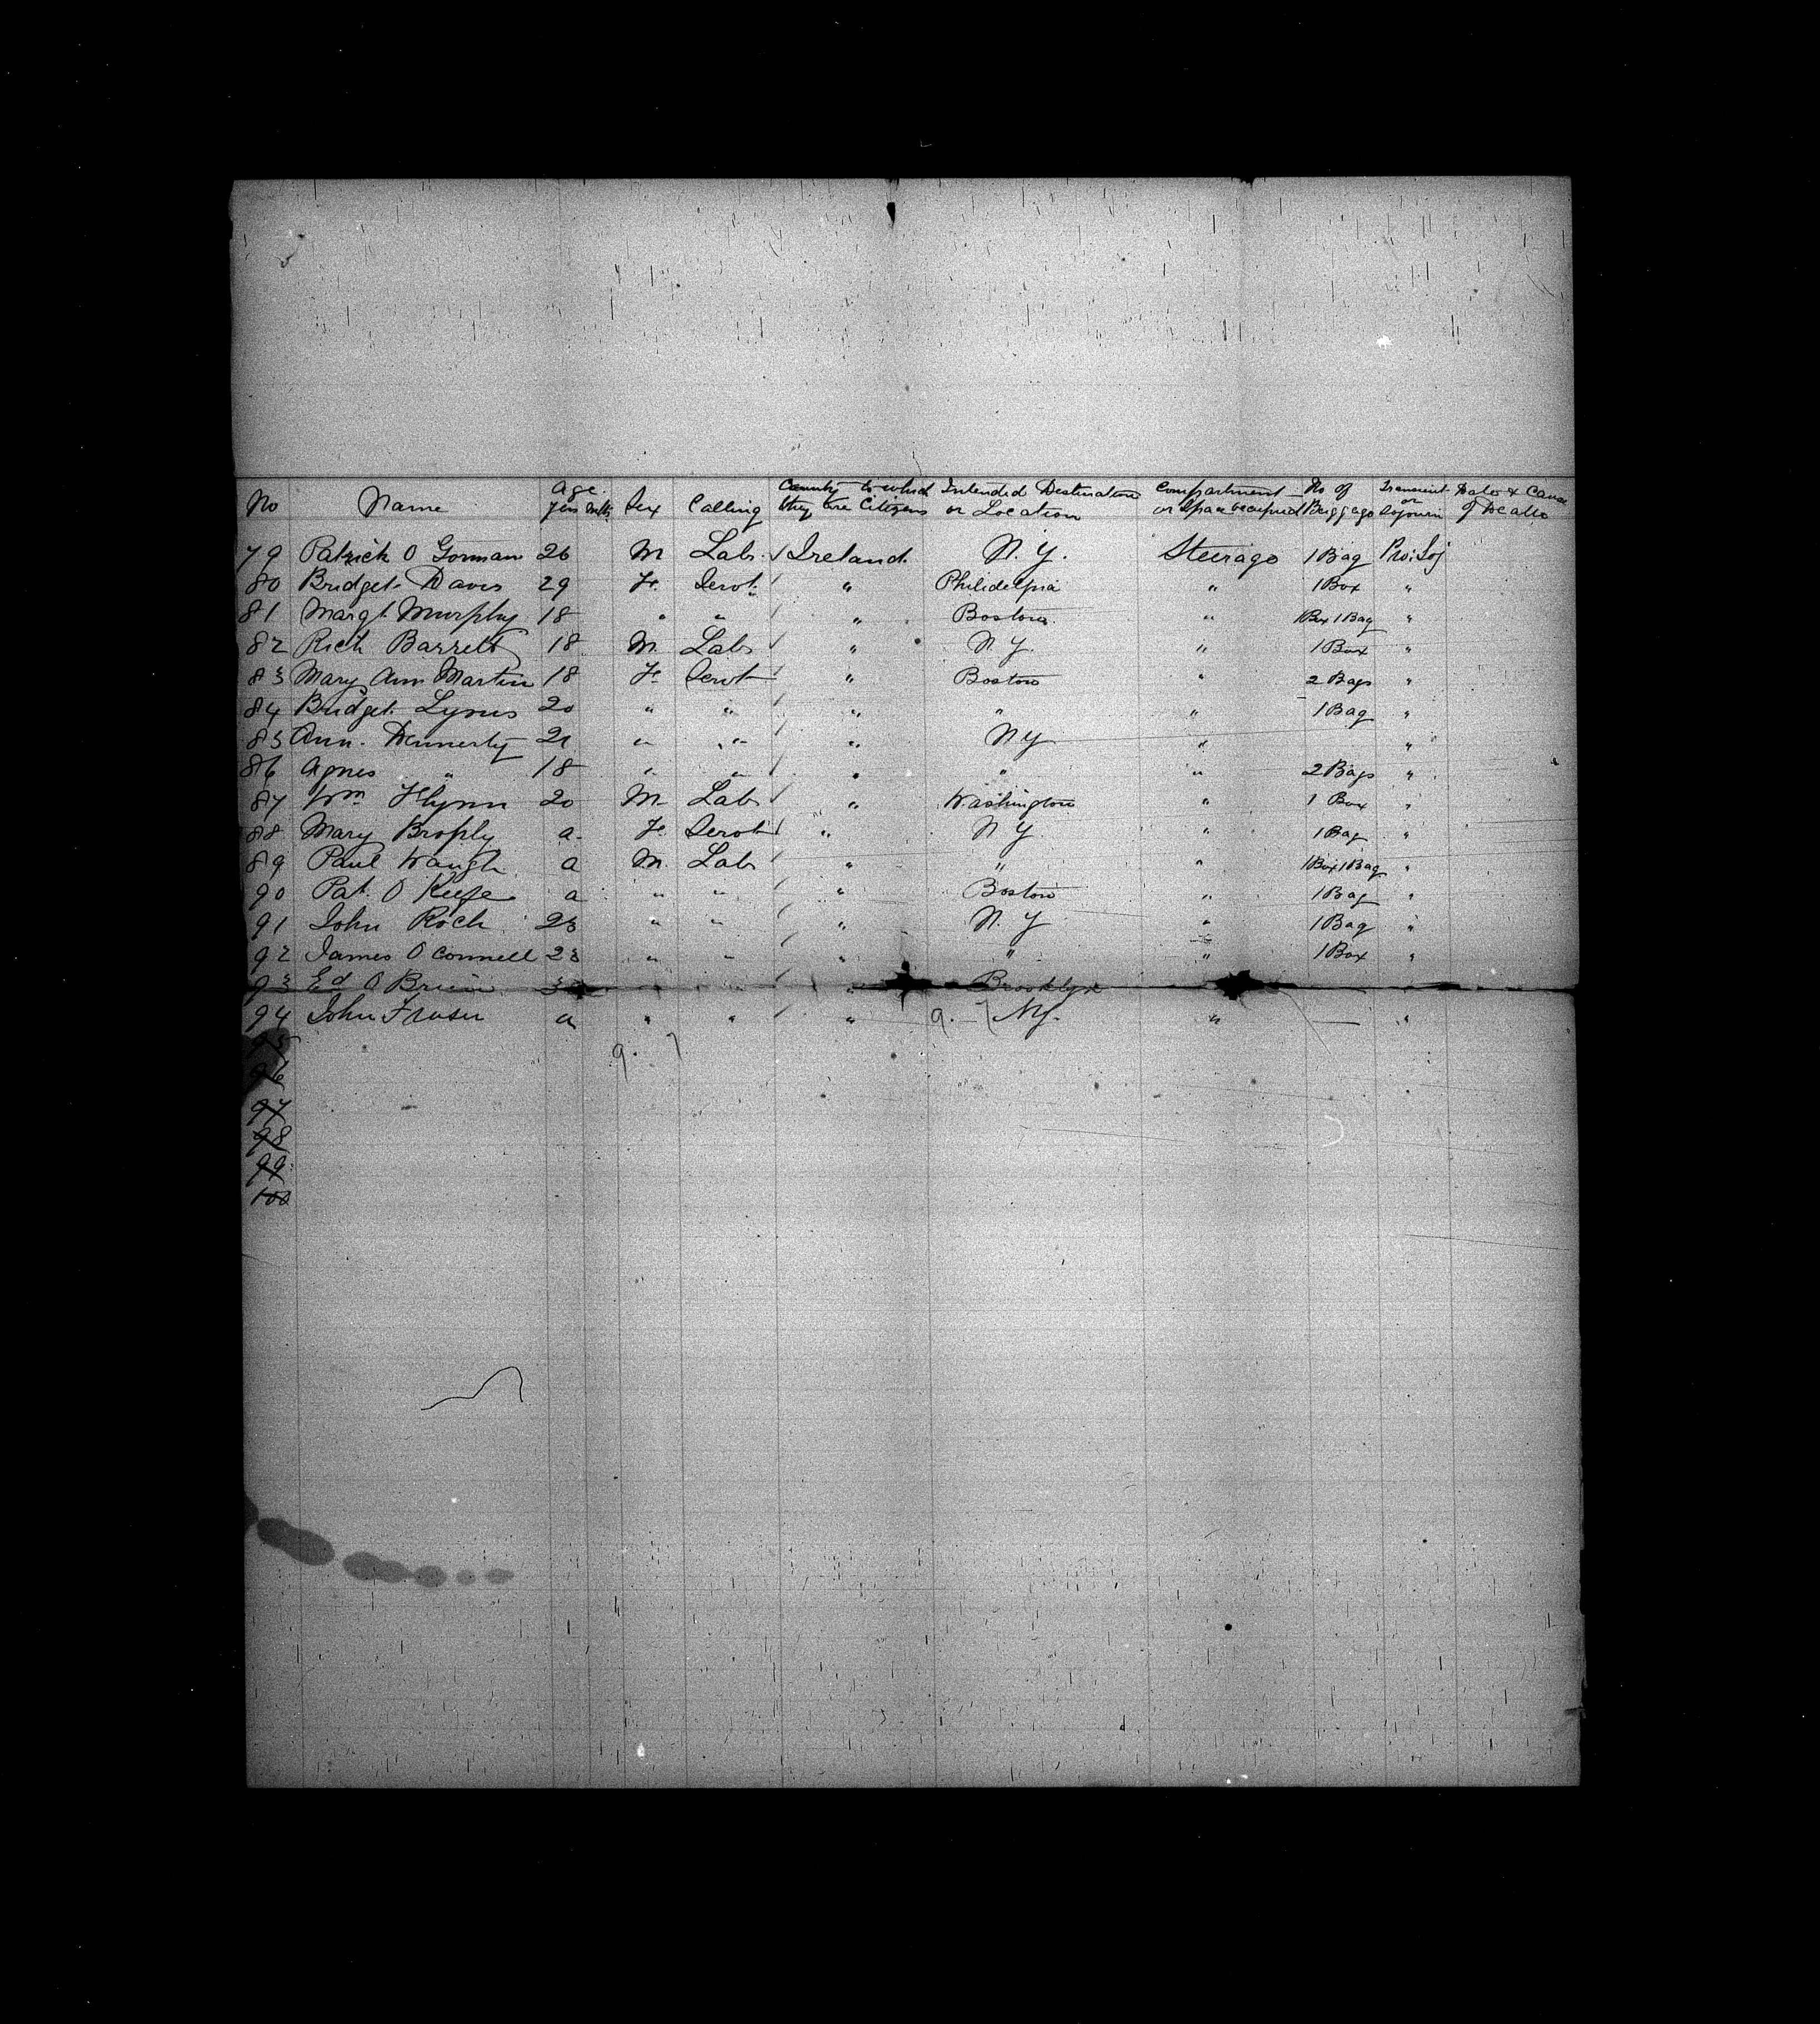 No Name Age Yrs Mths Sex Calling Country to which they are Citizens Intended Destination or Location Compartment or Space occupied No of Baggage Transient or Sojourn Date & Cause of Death
79 Patrick O Gorman 26 M Lab. Ireland N.Y. Steerage 1 Bag Pro: Soj
80 Bridget Davis 29 Fe Servt " Philidelpia " 1 Box "
81 Margt Murphy 18 " " " Boston " 1 Box 1 Bag "
82 Rich Barrett 18 M Lab " N.Y. " 1 Box "
83 Mary Ann Martin 18 Fe Servt " Boston " 2 Bags "
84 Bridget Lynes 20 " " " " " 1 Bag "
85 Ann Dennerty 21 " " " N Y " "
86 Agnes " 18 " " " " " 2 Bags "
87 Wm Flynn 20 M Lab " Washington " 1 Box "
88 Mary Brophy a Fe Servt " N Y " 1 Bag "
89 Paul Waugh a M Lab " " " 1 Box 1 Bag "
90 Pat O Keefe a " " " Boston " 1 Bag "
91 John Roch 23 " " " N. Y " 1 Bag "
92 James O Connell 23 " " " " " 1 Box "
93 Ed O Brien " Brooklyn
94 John Fraser a " " " 9. 7 NY. " — "
95 9. 7
96
97
98
99
100